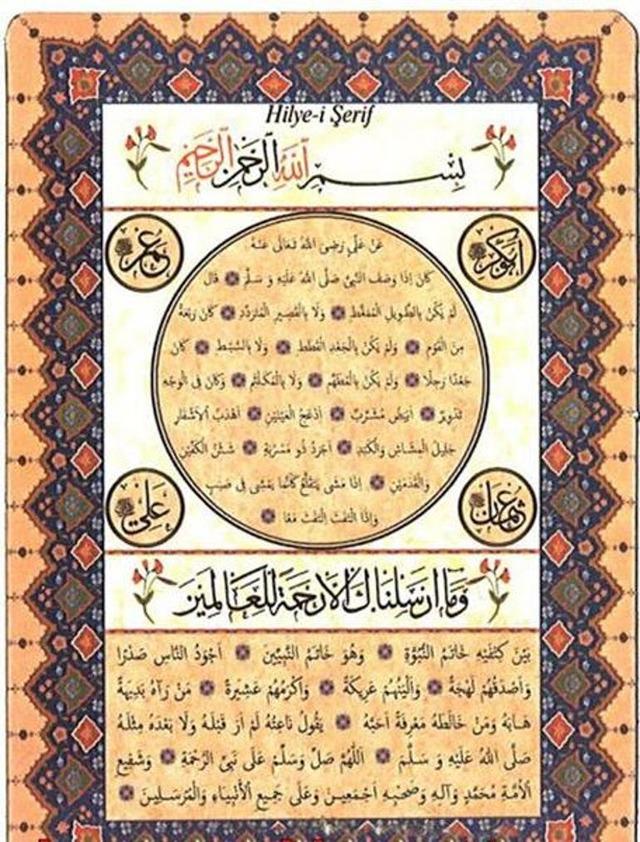 Hilye-i Şerif
بِسْمِ اللهِ الرَّحْمٰنِ الرَّحِيمِ
أبو بكر
عمر
عَنْ عَلِيٍّ رَضِيَ اللهُ تَعَالَى عَنْهُ
كَانَ إِذَا وَصَفَ النَّبِيَّ صَلَّى اللهُ عَلَيْهِ وَ سَلَّمَ قَالَ
لَمْ يَكُنْ بِالطَّوِيلِ الْمُمَغَّطِ وَلَا بِالْقَصِيرِ الْمُتَرَدِّدِ كَانَ رَبْعَةً
مِنَ الْقَوْمِ وَلَمْ يَكُنْ بِالْجَعْدِ الْقَطَطِ وَلَا بِالسَّبْطِ كَانَ
جَعْدًا رَجِلًا وَلَمْ يَكُنْ بِالْمُطَهَّمِ وَلَا بِالْمُكَلْثَمِ وَكَانَ فِي الْوَجْهِ
تَدْوِيرٌ أَبْيَضُ مُشْرَبٌ أَدْعَجُ الْعَيْنَيْنِ أَهْدَبُ الْأَشْفَارِ
جَلِيلُ الْمُشَاشِ وَالْكَتَدِ أَجْرَدُ ذُو مَسْرُبَةٍ شَثْنُ الْكَفَّيْنِ
وَالْقَدَمَيْنِ إِذَا مَشَى يَتَقَلَّعُ كَأَنَّمَا يَمْشِي فِي صَبَبٍ
وَإِذَا الْتَفَتَ الْتَفَتَ مَعًا
عثمان
علي
وَمَا أَرْسَلْنَاكَ إِلَّا رَحْمَةً لِلْعَالَمِينَ
بَيْنَ كَتِفَيْهِ خَاتَمُ النُّبُوَّةِ وَهُوَ خَاتَمُ النَّبِيِّينَ أَجْوَدُ النَّاسِ صَدْرًا
وَأَصْدَقُهُمْ لَهْجَةً وَأَلْيَنُهُمْ عَرِيكَةً وَأَكْرَمُهُمْ عَشِيرَةً مَنْ رَآهُ بَدِيهَةً
هَابَهُ وَمَنْ خَالَطَهُ مَعْرِفَةً أَحَبَّهُ يَقُولُ نَاعِتُهُ لَمْ أَرَ قَبْلَهُ وَلَا بَعْدَهُ مِثْلَهُ
صَلَّى اللهُ عَلَيْهِ وَ سَلَّمَ اَللّٰهُمَّ صَلِّ وَسَلِّمْ عَلَى نَبِيِّ الرَّحْمَةِ وَشَفِيعِ
الْأُمَّةِ مُحَمَّدٍ وَآلِهِ وَصَحْبِهِ أَجْمَعِينَ وَعَلَى جَمِيعِ الْأَنْبِيَاءِ وَالْمُرْسَلِينَ